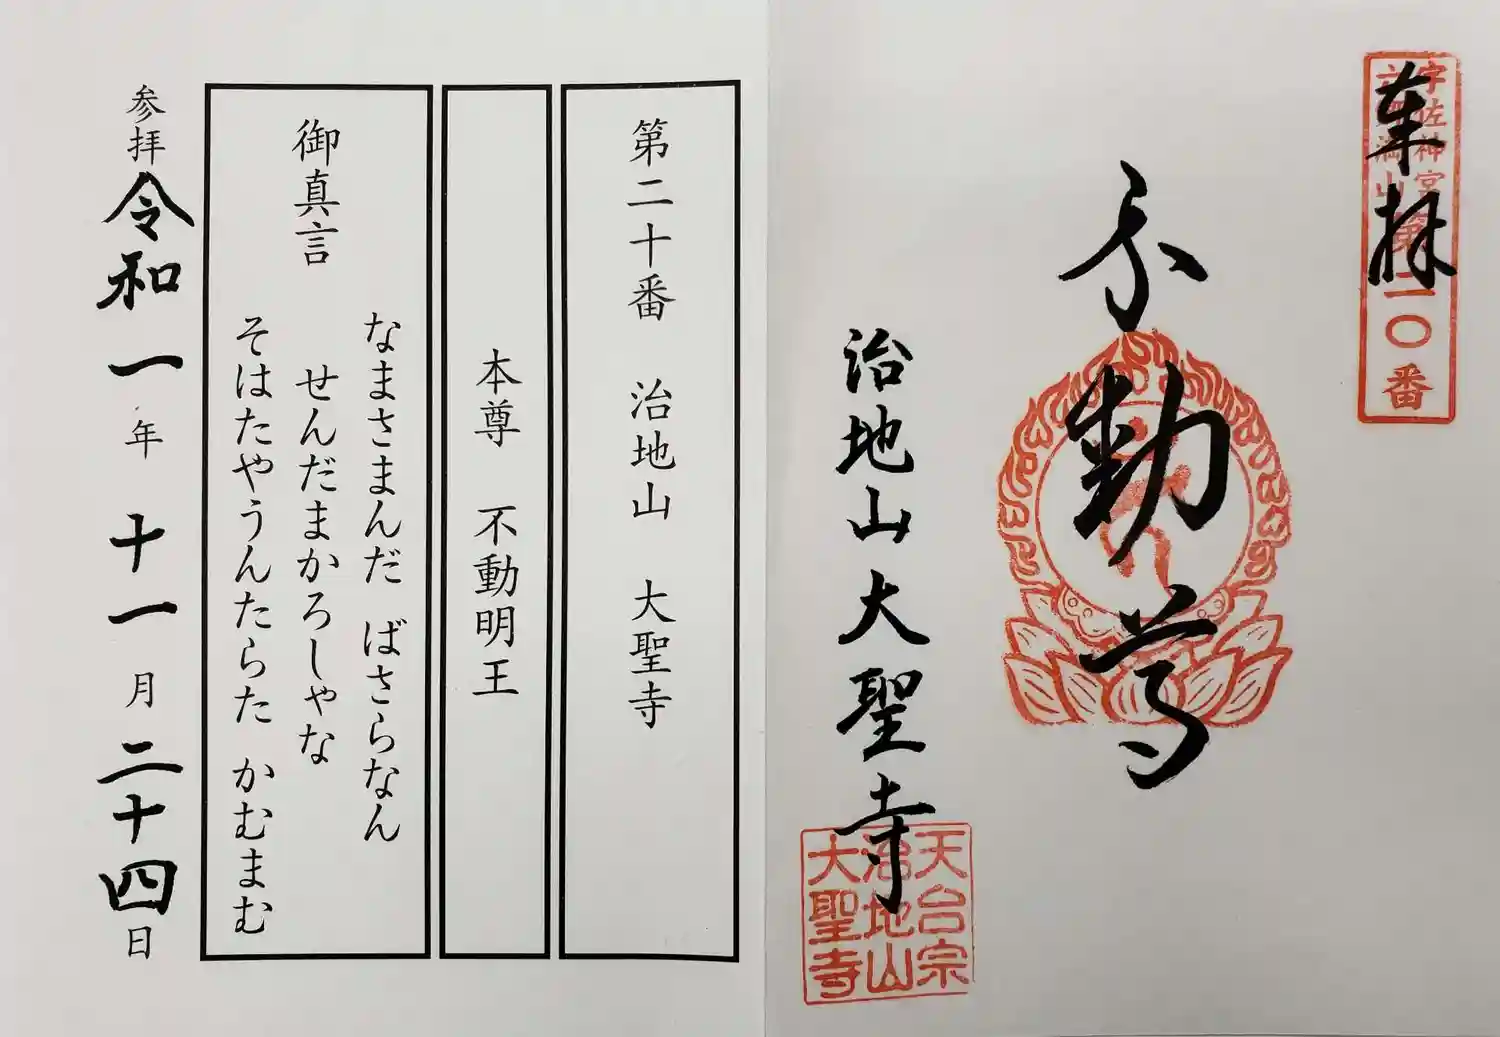 奉拝
宇佐神宮
六郷満山
第二〇番
不動尊
治地山大聖寺
天台宗
治地山
大聖寺
第二十番 治地山 大聖寺
本尊 不動明王
御真言
なまさまんだ ばさらなん
せんだまかろしゃな
そはたやうんたらた かむまむ
参拝 令和一年 十一月 二十四日